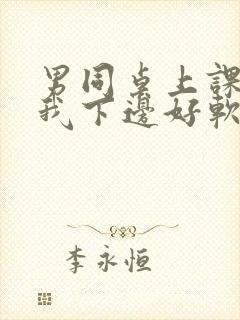 男同桌上課
我下邊好軟
李永恒